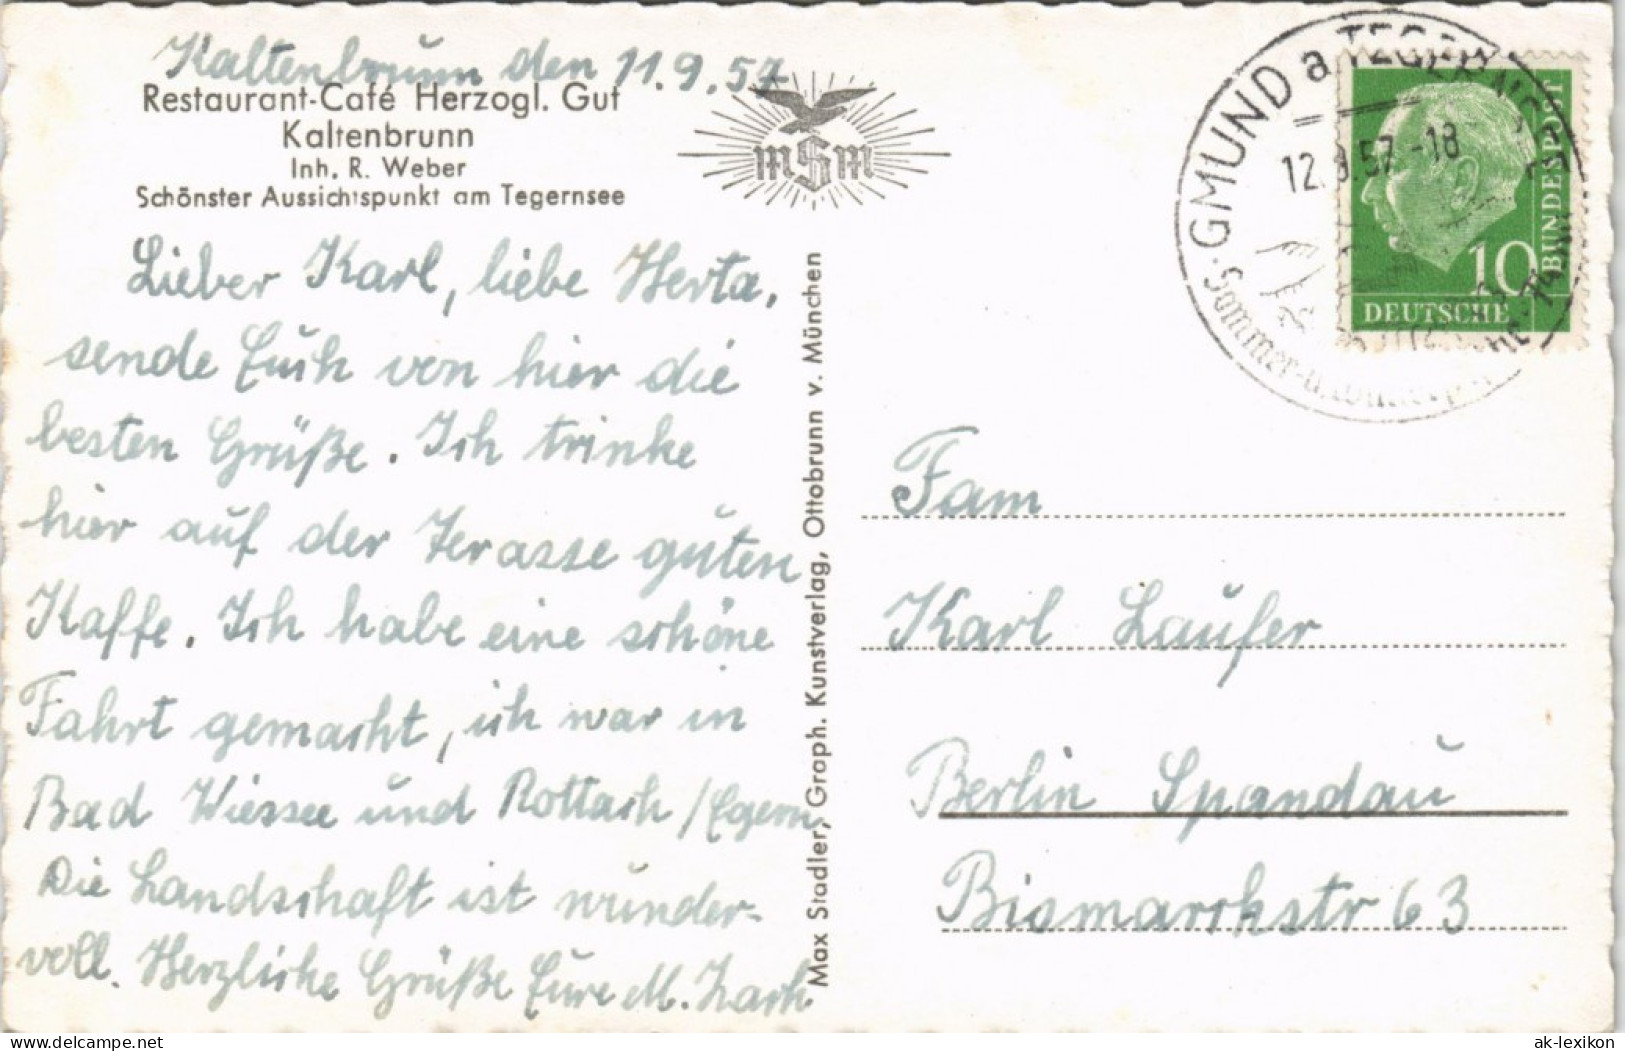 Kaltenbrunn den 11.9.57
Restaurant-Café Herzogl. Gut
Kaltenbrunn
Inh. R. Weber
Schönster Aussichtspunkt am Tegernsee
mSm
Lieber Karl, liebe Herta,
sende Euch von hier die
besten Grüße. Ich trinke
hier auf der Terasse guten
Kaffe. Ich habe eine schöne
Fahrt gemacht, ich war in
Bad Wiessee und Rottach/Egern
Die Landschaft ist wunder-
voll. Herzliche Grüße Eure M. Zach
Max Stadler, Graph. Kunstverlag, Ottobrunn v. München
GMUND a TEGERNSEE
12.9.57-18
Sommer-u.
10
BUNDESPOST
DEUTSCHE
Fam
Karl Laufer
Berlin Spandau
Bismarchstr 63
hippostcard.com
ak-lexikon